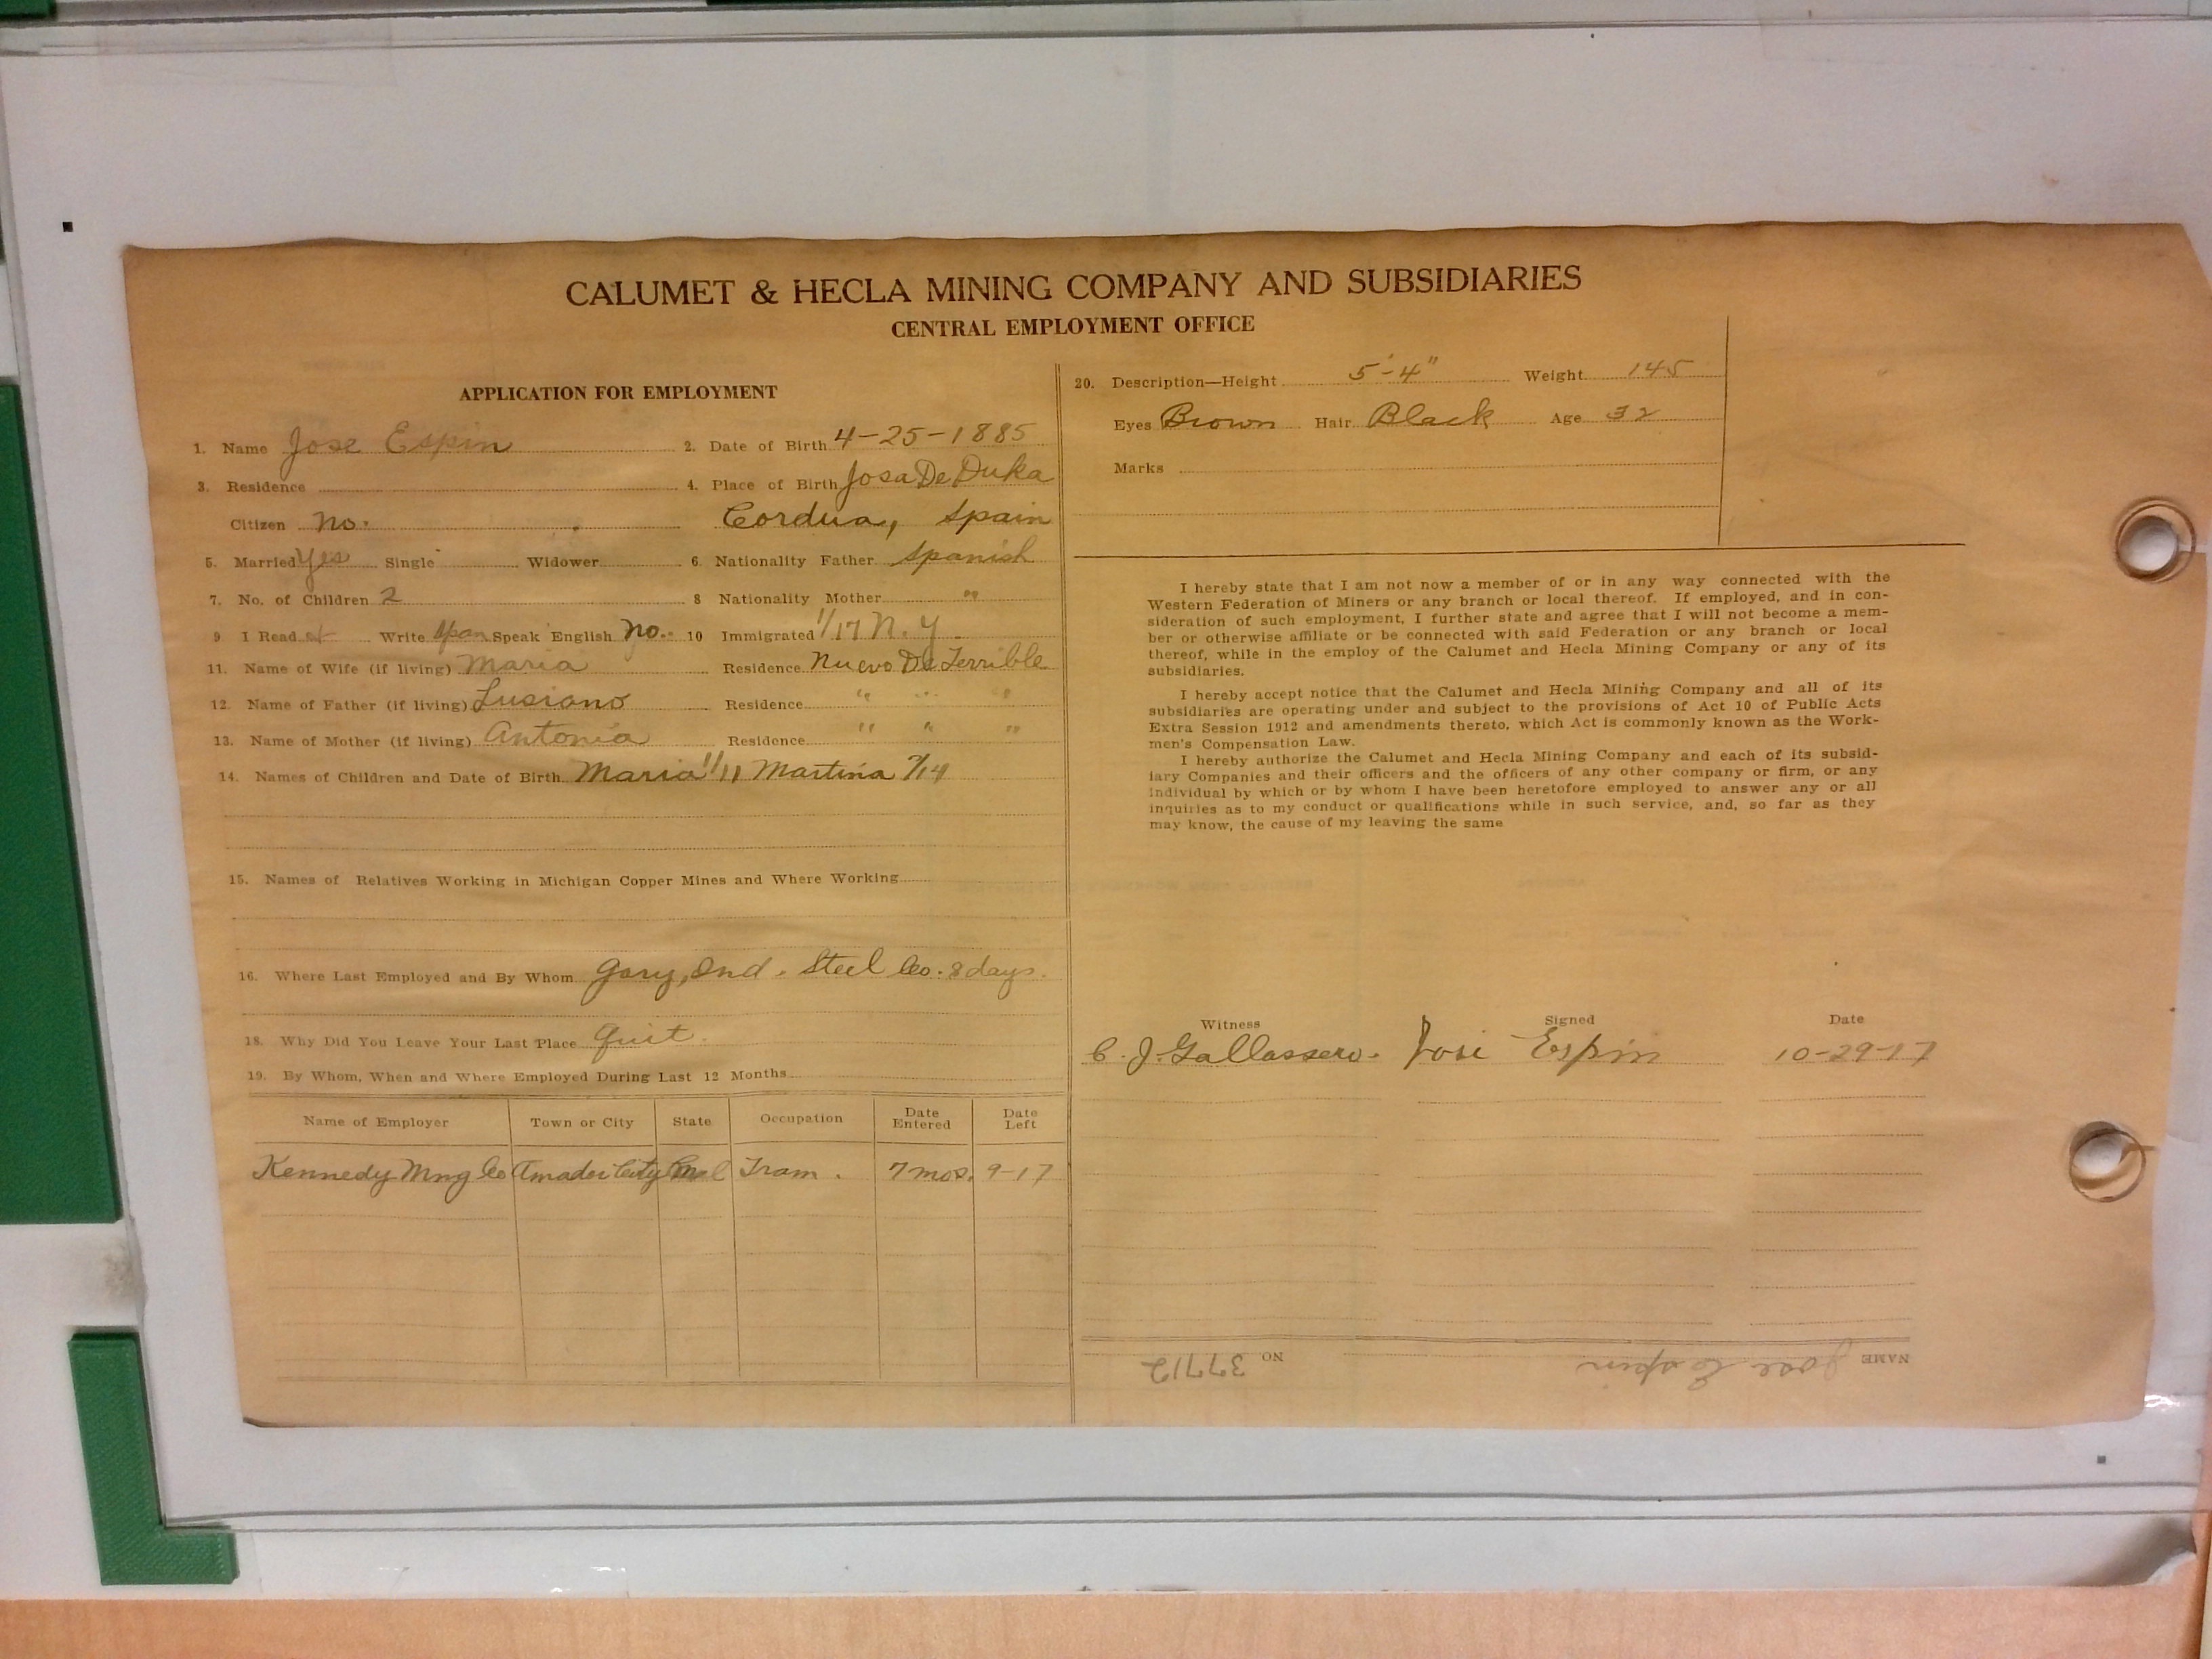 CALUMET & HECLA MINING COMPANY AND SUBSIDIARIES
CENTRAL EMPLOYMENT OFFICE
APPLICATION FOR EMPLOYMENT
1. Name Jose Espin 2. Date of Birth 4-25-1885
3. Residence 4. Place of Birth Josa De Duka
Citizen no. Cordua, Spain
5. Married Yes Single Widower 6. Nationality Father Spanish
7. No. of Children 2 8 Nationality Mother "
9 I Read & Write Span Speak English no. 10 Immigrated 1/17 N. Y.
11. Name of Wife (if living) Maria Residence Nuevo De Terrible
12. Name of Father (if living) Lusiano Residence " " "
13. Name of Mother (if living) Antonia Residence " " "
14. Names of Children and Date of Birth Maria 1/11 Martina 7/14
15. Names of Relatives Working in Michigan Copper Mines and Where Working
16. Where Last Employed and By Whom Gary, Ind. Steel Co. 8 days.
18. Why Did You Leave Your Last Place Quit.
19. By Whom, When and Where Employed During Last 12 Months
Name of Employer Town or City State Occupation Date Entered Date Left
Kennedy Mng Co Amador City Cal Tram. 7 mos. 9-17
20. Description—Height 5'-4" Weight 145
Eyes Brown Hair Black Age 32
Marks
I hereby state that I am not now a member of or in any way connected with the
Western Federation of Miners or any branch or local thereof. If employed, and in con-
sideration of such employment, I further state and agree that I will not become a mem-
ber or otherwise affiliate or be connected with said Federation or any branch or local
thereof, while in the employ of the Calumet and Hecla Mining Company or any of its
subsidiaries.
I hereby accept notice that the Calumet and Hecla Mining Company and all of its
subsidiaries are operating under and subject to the provisions of Act 10 of Public Acts
Extra Session 1912 and amendments thereto, which Act is commonly known as the Work-
men's Compensation Law.
I hereby authorize the Calumet and Hecla Mining Company and each of its subsid-
iary Companies and their officers and the officers of any other company or firm, or any
individual by which or by whom I have been heretofore employed to answer any or all
inquiries as to my conduct or qualifications while in such service, and, so far as they
may know, the cause of my leaving the same
Witness Signed Date
C. J. Gallassero. Josi Espin 10-29-17
NAME Jose Espin NO 37712